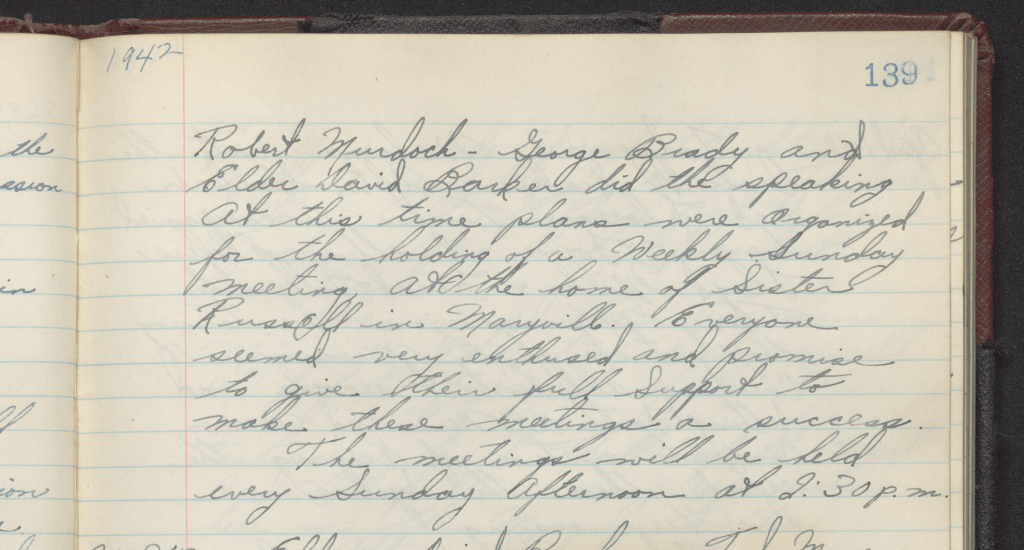 1942
139
the
ssion
in
ion
Robert Murdoch - George Brady and
Elder David Barker did the speaking
At this time plans were organized
for the holding of a Weekly Sunday
meeting at the home of Sister
Russell in Maryvill. Everyone
seemed very enthused and promise
to give their full Support to
make these meetings a success.
The meetings will be held
every Sunday Afternoon at 2:30 p.m.
Elder